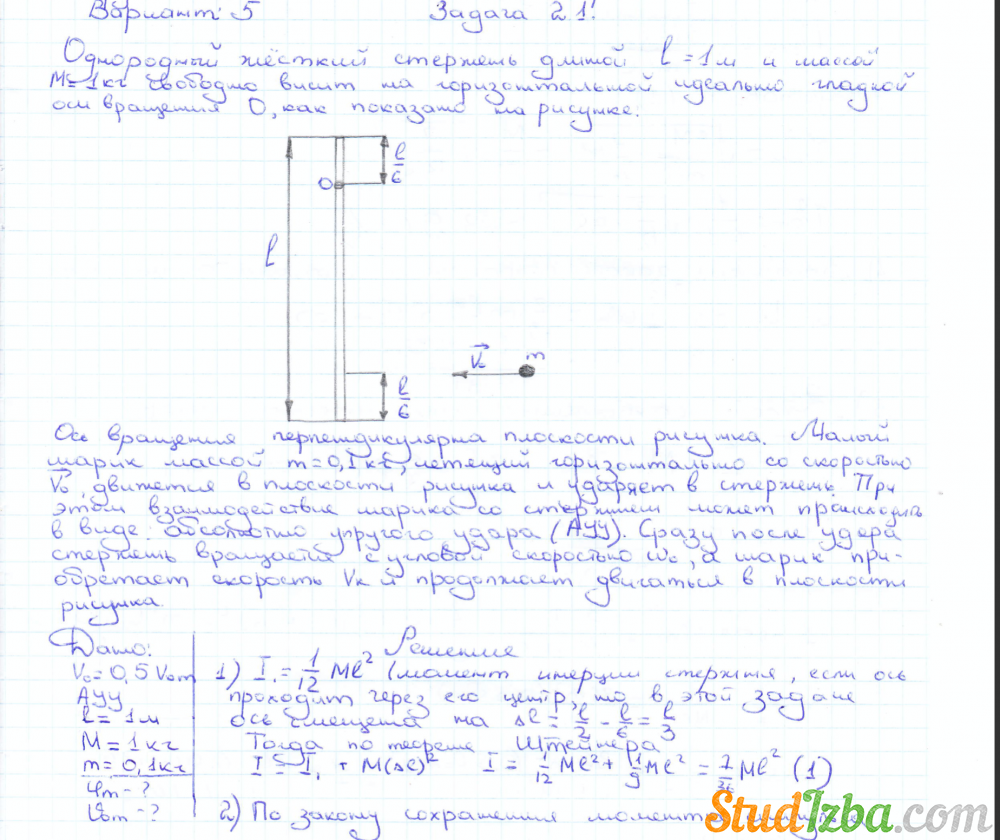 Вариант: 5 Задача 2.1!
Однородный жёсткий стержень длиной l = 1 м и массой
M = 1 кг свободно висит на горизонтальной идеально гладкой
оси вращения О, как показано на рисунке.
l/6
O
l
V₀
m
l/6
Ось вращения перпендикулярна плоскости рисунка. Малый
шарик массой m = 0,1 кг, летящий горизонтально со скоростью
V₀, движется в плоскости рисунка и ударяет в стержень. При
этом взаимодействие шарика со стержнем может происходить
в виде: абсолютно упругого удара (АУУ). Сразу после удара
стержень вращается с угловой скоростью ω₀, а шарик при-
обретает скорость Vк и продолжает двигаться в плоскости
рисунка.
Дано: Решение
V₀ = 0,5 V₀m 1) I₁ = 1/12 Ml² (момент инерции стержня, если ось
АУУ проходит через его центр, но в этой задаче
l = 1 м ось смещена на Δl = l/2 - l/6 = l/3
M = 1 кг Тогда по теореме Штейнера
m = 0,1 кг I = I₁ + M(Δl)² I = 1/12 Ml² + 1/9 Ml² = 7/36 Ml² (1)
φm - ?
V₀m - ? 2) По закону сохранения момента
StudIzba.com